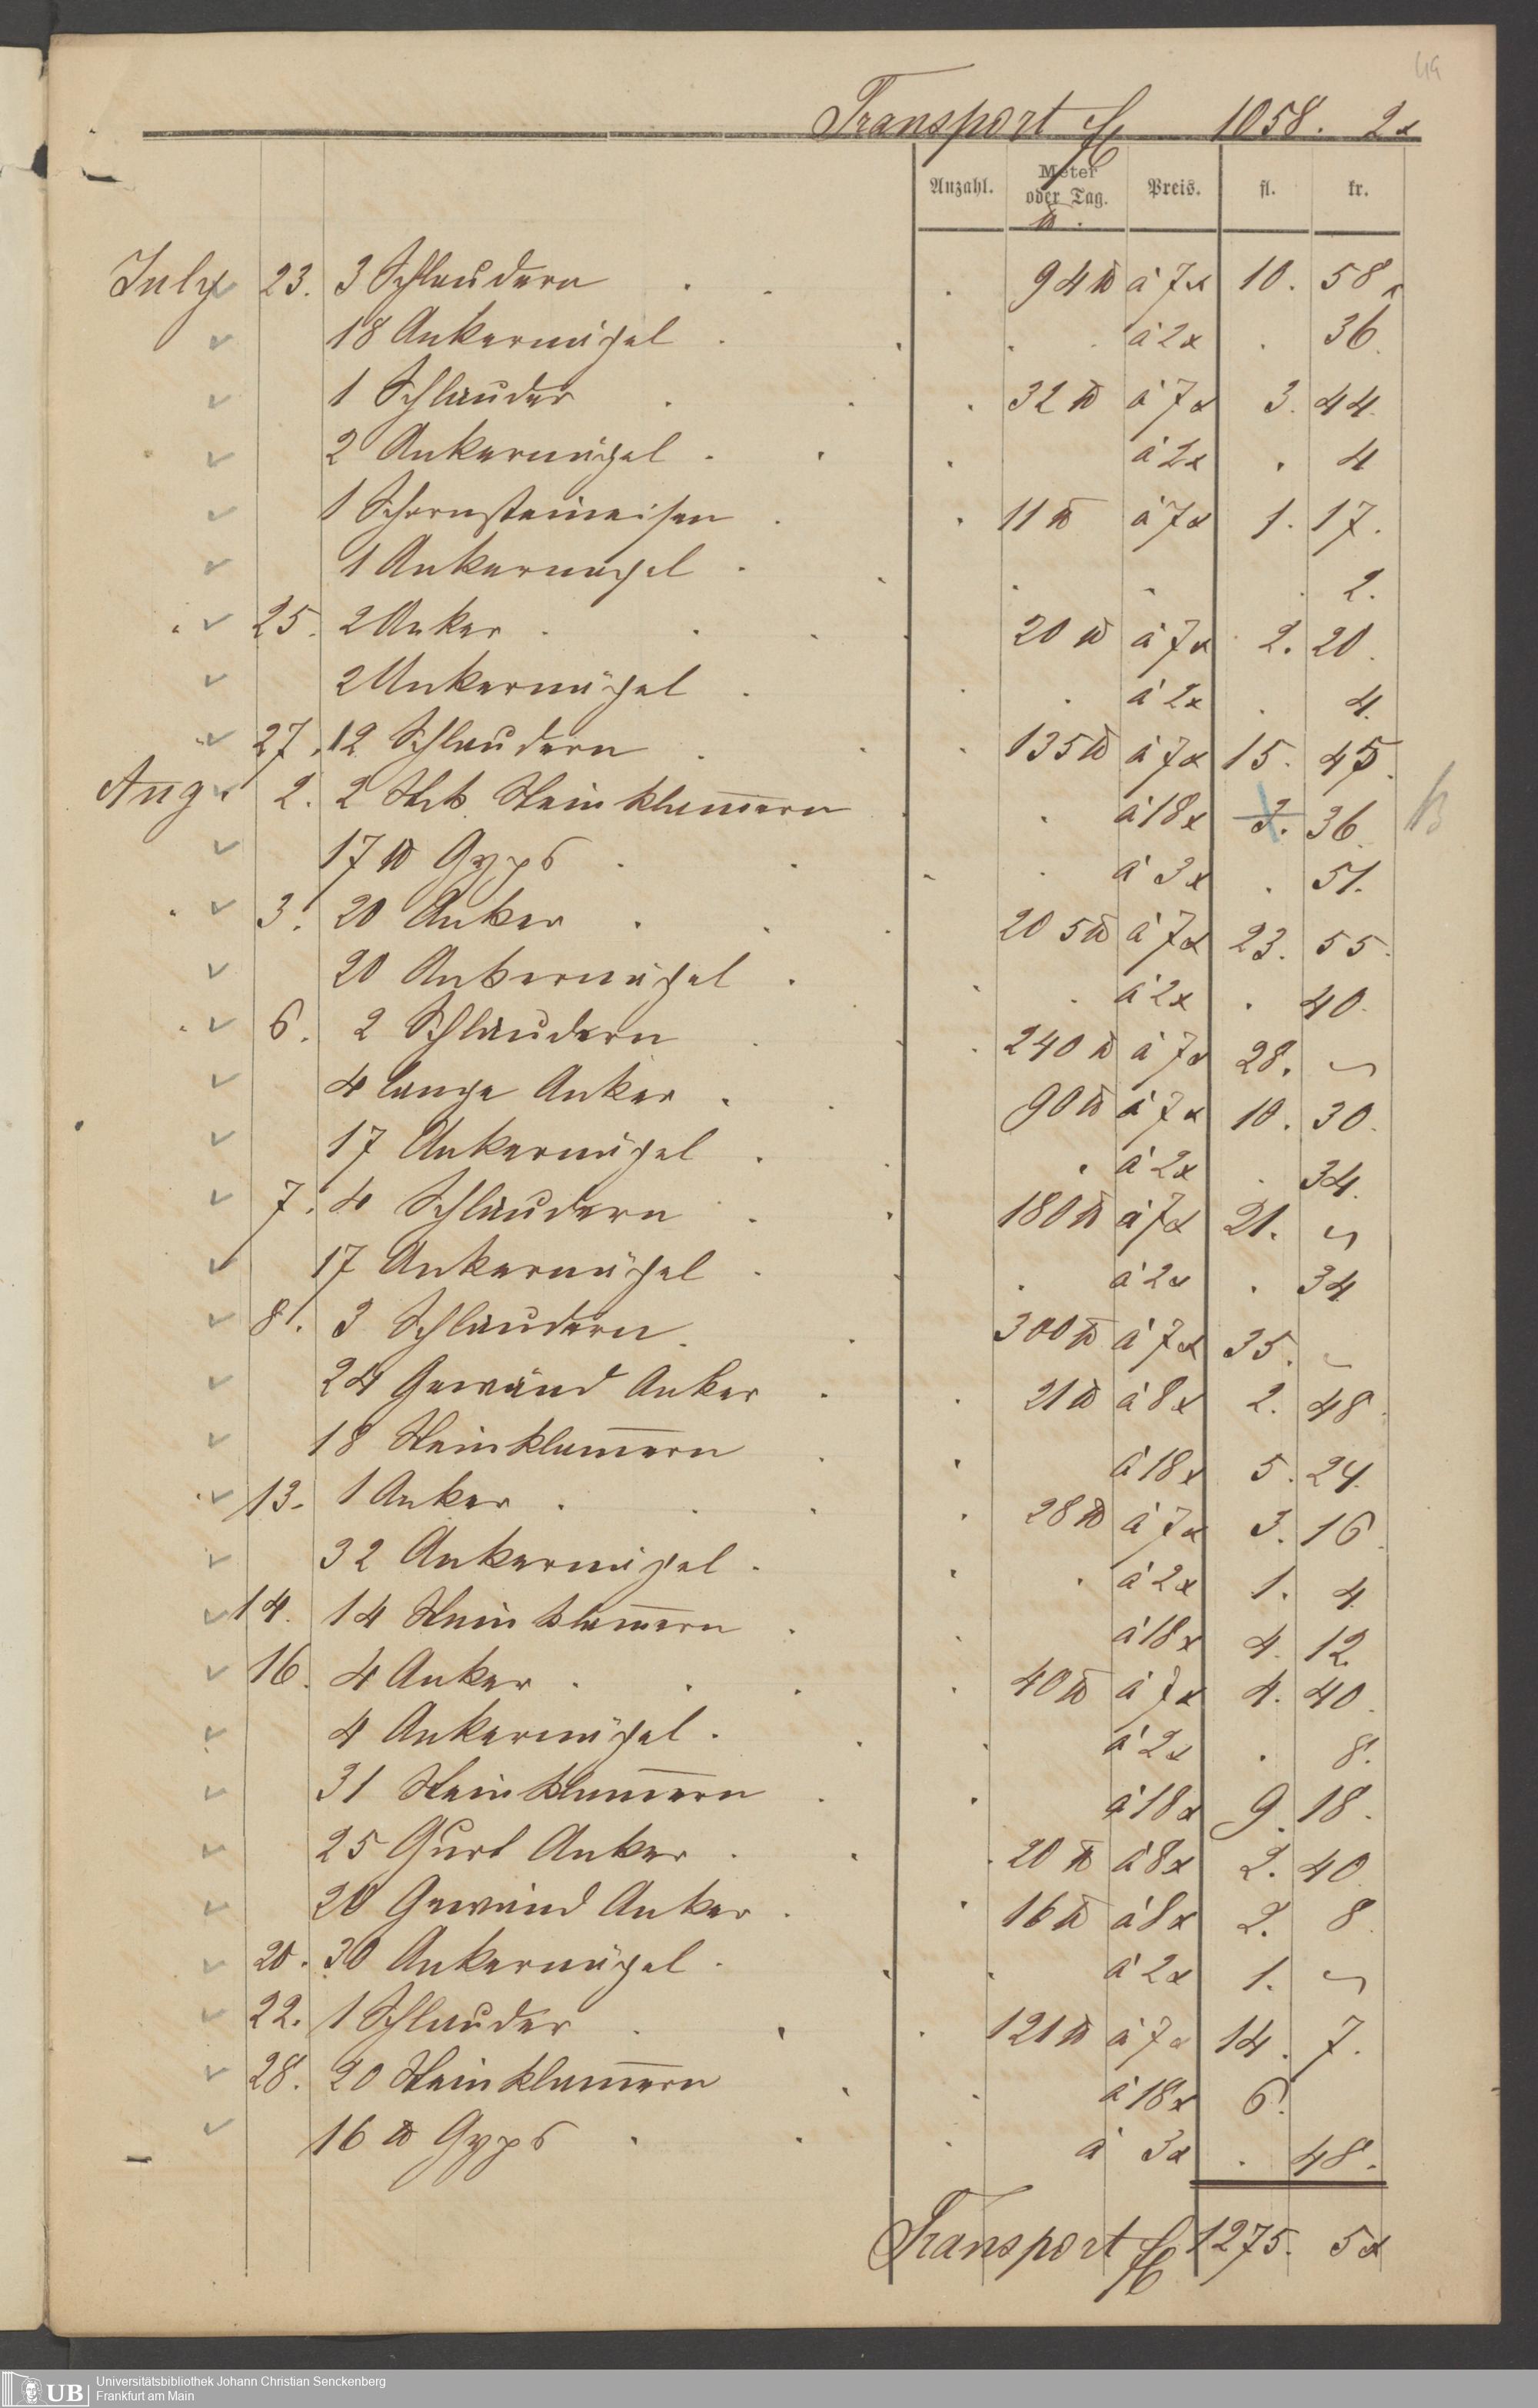 49
Transport fl 1058. 2x
Anzahl. Meter oder Tag. ℔. Preis. fl. kr.
July 23. 3 Schlaudern . . . 94 ℔ á 7x 10. 58
18 Ankernägel . . . á 2x . 36.
1 Schlauder . . . 32 ℔ á 7x 3. 44.
2 Ankernägel . . . á 2x . 4
1 Schornsteineisen . . 11 ℔ á 7x 1. 17.
1 Ankernagel . . . . . 2.
25. 2 Anker . . . . 20 ℔ á 7x 2. 20.
2 Ankernägel . . . á 2x . 4.
27. 12 Schlaudern . . . 135 ℔ á 7x 15. 45.
Aug. 2. 2 Stck Steinklam̅ern . . á 18x 3. 36.
17 ℔ Gyps . . . . á 3x . 51.
3. 20 Anker . . . 205 ℔ á 7x 23. 55.
20 Ankernägel . . . á 2x . 40.
6. 2 Schlaudern . . . 240 ℔ á 7x 28. ~
4 lange Anker . . 90 ℔ á 7x 10. 30.
17 Ankernägel . . . á 2x . 34.
7. 4 Schlaudern . . 180 ℔ á 7x 21. ~
17 Ankernägel . . . á 2x . 34
8. 3 Schlaudern . . 300 ℔ á 7x 35. ~
24 Gewänd Anker . . 21 ℔ á 8x 2. 48.
18 Steinklam̅ern . . á 18x 5. 24.
13. 1 Anker . . . . 28 ℔ á 7x 3. 16.
32 Ankernägel . . . á 2x 1. 4
14. 14 Steinklam̅ern . . á 18x 4. 12
16. 4 Anker . . . . 40 ℔ á 7x 4. 40.
4 Ankernägel . . . á 2x . 8.
31 Steinklam̅ern . . á 18x 9. 18.
25 Gurt Anker . . . 20 ℔ á 8x 2. 40
20 Gewänd Anker . . 16 ℔ á 8x 2. 8.
20. 30 Ankernägel . . . á 2x 1. ~
22. 1 Schlauder . . . 121 ℔ á 7x 14. 7.
28. 20 Steinklam̅ern . . á 18x 6.
16 ℔ Gyps . . . á 3x . 48.
Transport fl 1275. 5x
UB Universitätsbibliothek Johann Christian Senckenberg
Frankfurt am Main